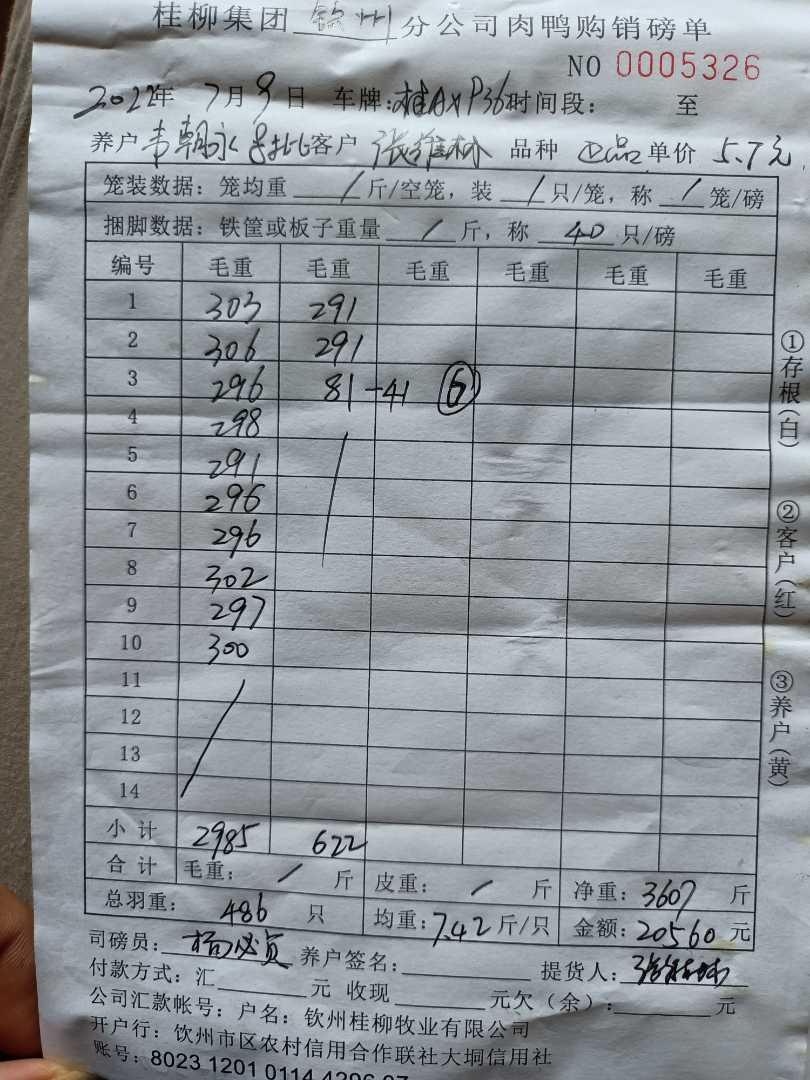 桂柳集团 钦州 分公司肉鸭购销磅单
NO 0005326
2022年 7月9日 车牌: 桂A 时间段: 至
养户 韦朝永 客户 张维林 品种 正品 单价 5.7元
笼装数据: 笼均重 / 斤/空笼, 装 / 只/笼, 称 / 笼/磅
捆脚数据: 铁筐或板子重量 / 斤, 称 40 只/磅
编号 毛重 毛重 毛重 毛重 毛重 毛重
1 303 291
2 306 291
3 296 81-41 ⑥
4 298
5 291
6 296
7 296
8 302
9 297
10 300
11
12
13
14
小计 2985 622
合计 毛重: / 斤 皮重: / 斤 净重: 3607 斤
总羽重: 486 只 均重: 7.42 斤/只 金额: 20560 元
司磅员: 养户签名: 提货人: 张维林
付款方式: 汇 元 收现 元欠(余): 元
公司汇款帐号: 户名: 钦州桂柳牧业有限公司
开户行: 钦州市区农村信用合作联社大垌信用社
账号: 8023 1201 0114 4296 07
①存根(白)
②客户(红)
③养户(黄)